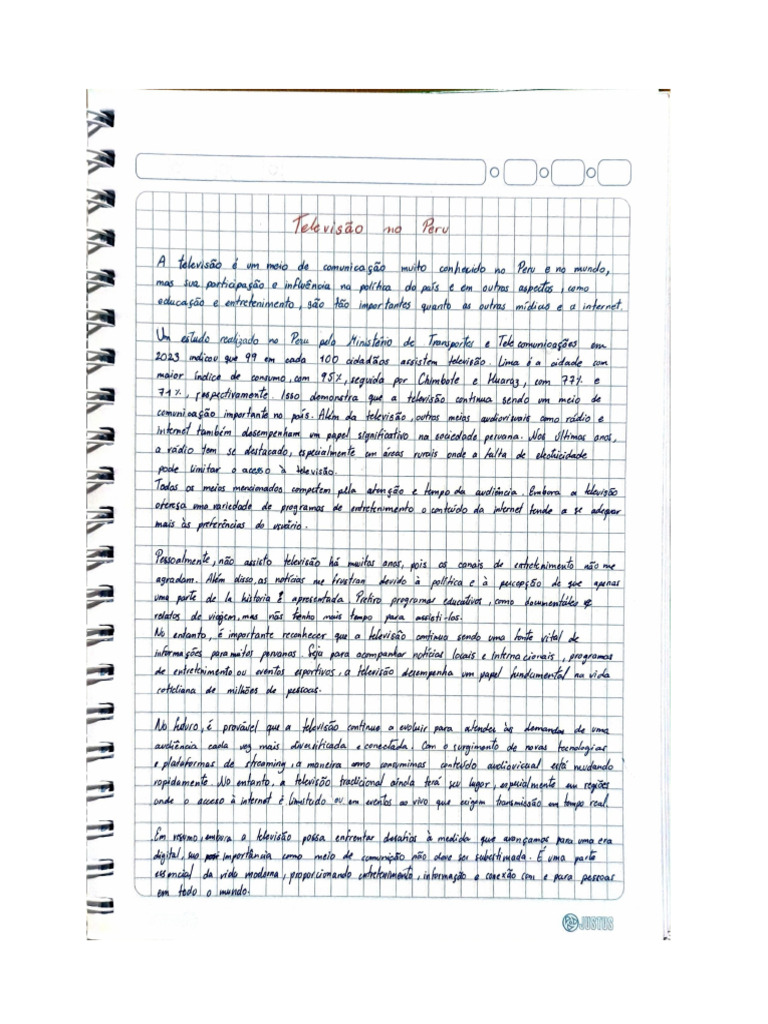 Televisão no Peru
A televisão é um meio de comunicação muito conhecido no Peru e no mundo,
mas sua participação e influência na política do país e em outros aspectos, como
educação e entretenimento, são tão importantes quanto as outras mídias e a internet.
Um estudo realizado no Peru pelo Ministério de Transportes e Telecomunicações em
2023 indicou que 99 em cada 100 cidadãos assistem televisão. Lima é a cidade com
maior índice de consumo, com 95%, seguida por Chimbote e Huaraz, com 77% e
71%, respectivamente. Isso demonstra que a televisão continua sendo um meio de
comunicação importante no país. Além da televisão, outros meios audiovisuais como rádio e
internet também desempenham um papel significativo na sociedade peruana. Nos últimos anos,
a rádio tem se destacado, especialmente em áreas rurais onde a falta de eletricidade
pode limitar o acesso à televisão.
Todos os meios mencionados competem pela atenção e tempo da audiência. Embora a televisão
ofereça uma variedade de programas de entretenimento o conteúdo da internet tende a se adequar
mais às preferências do usuário.
Pessoalmente, não assisto televisão há muitos anos, pois os canais de entretenimento não me
agradam. Além disso, as notícias me frustran devido à política e à percepção de que apenas
uma parte de la historia é apresentada. Prefiro programas educativos, como documentáles e
relatos de viagem, mas não tenho mais tempo para assisti-los.
No entanto, é importante reconhecer que a televisão continua sendo uma fonte vital de
informações para muitos peruanos. Seja para acompanhar notícias locais e internacionais, programas
de entretenimento ou eventos esportivos, a televisão desempenha um papel fundamental na vida
cotidiana de milhões de pessoas.
No futuro, é provável que a televisão continue a evoluir para atender às demandas de uma
audiência cada vez mais diversificada e conectada. Com o surgimento de novas tecnologias
e plataformas de streaming, a maneira como consumimos conteúdo audiovisual está mudando
rapidamente. No entanto, a televisão tradicional ainda terá seu lugar, especialmente em regiões
onde o acesso à internet é limitado ou em eventos ao vivo que exigem transmissão em tempo real.
Em resumo, embora a televisão possa enfrentar desafios à medida que avançamos para uma era
digital, sua importância como meio de comunição não deve ser subestimada. É uma parte
essencial da vida moderna, proporcionando entretenimento, informação e conexão com e para pessoas
em todo o mundo.
JUSTUS